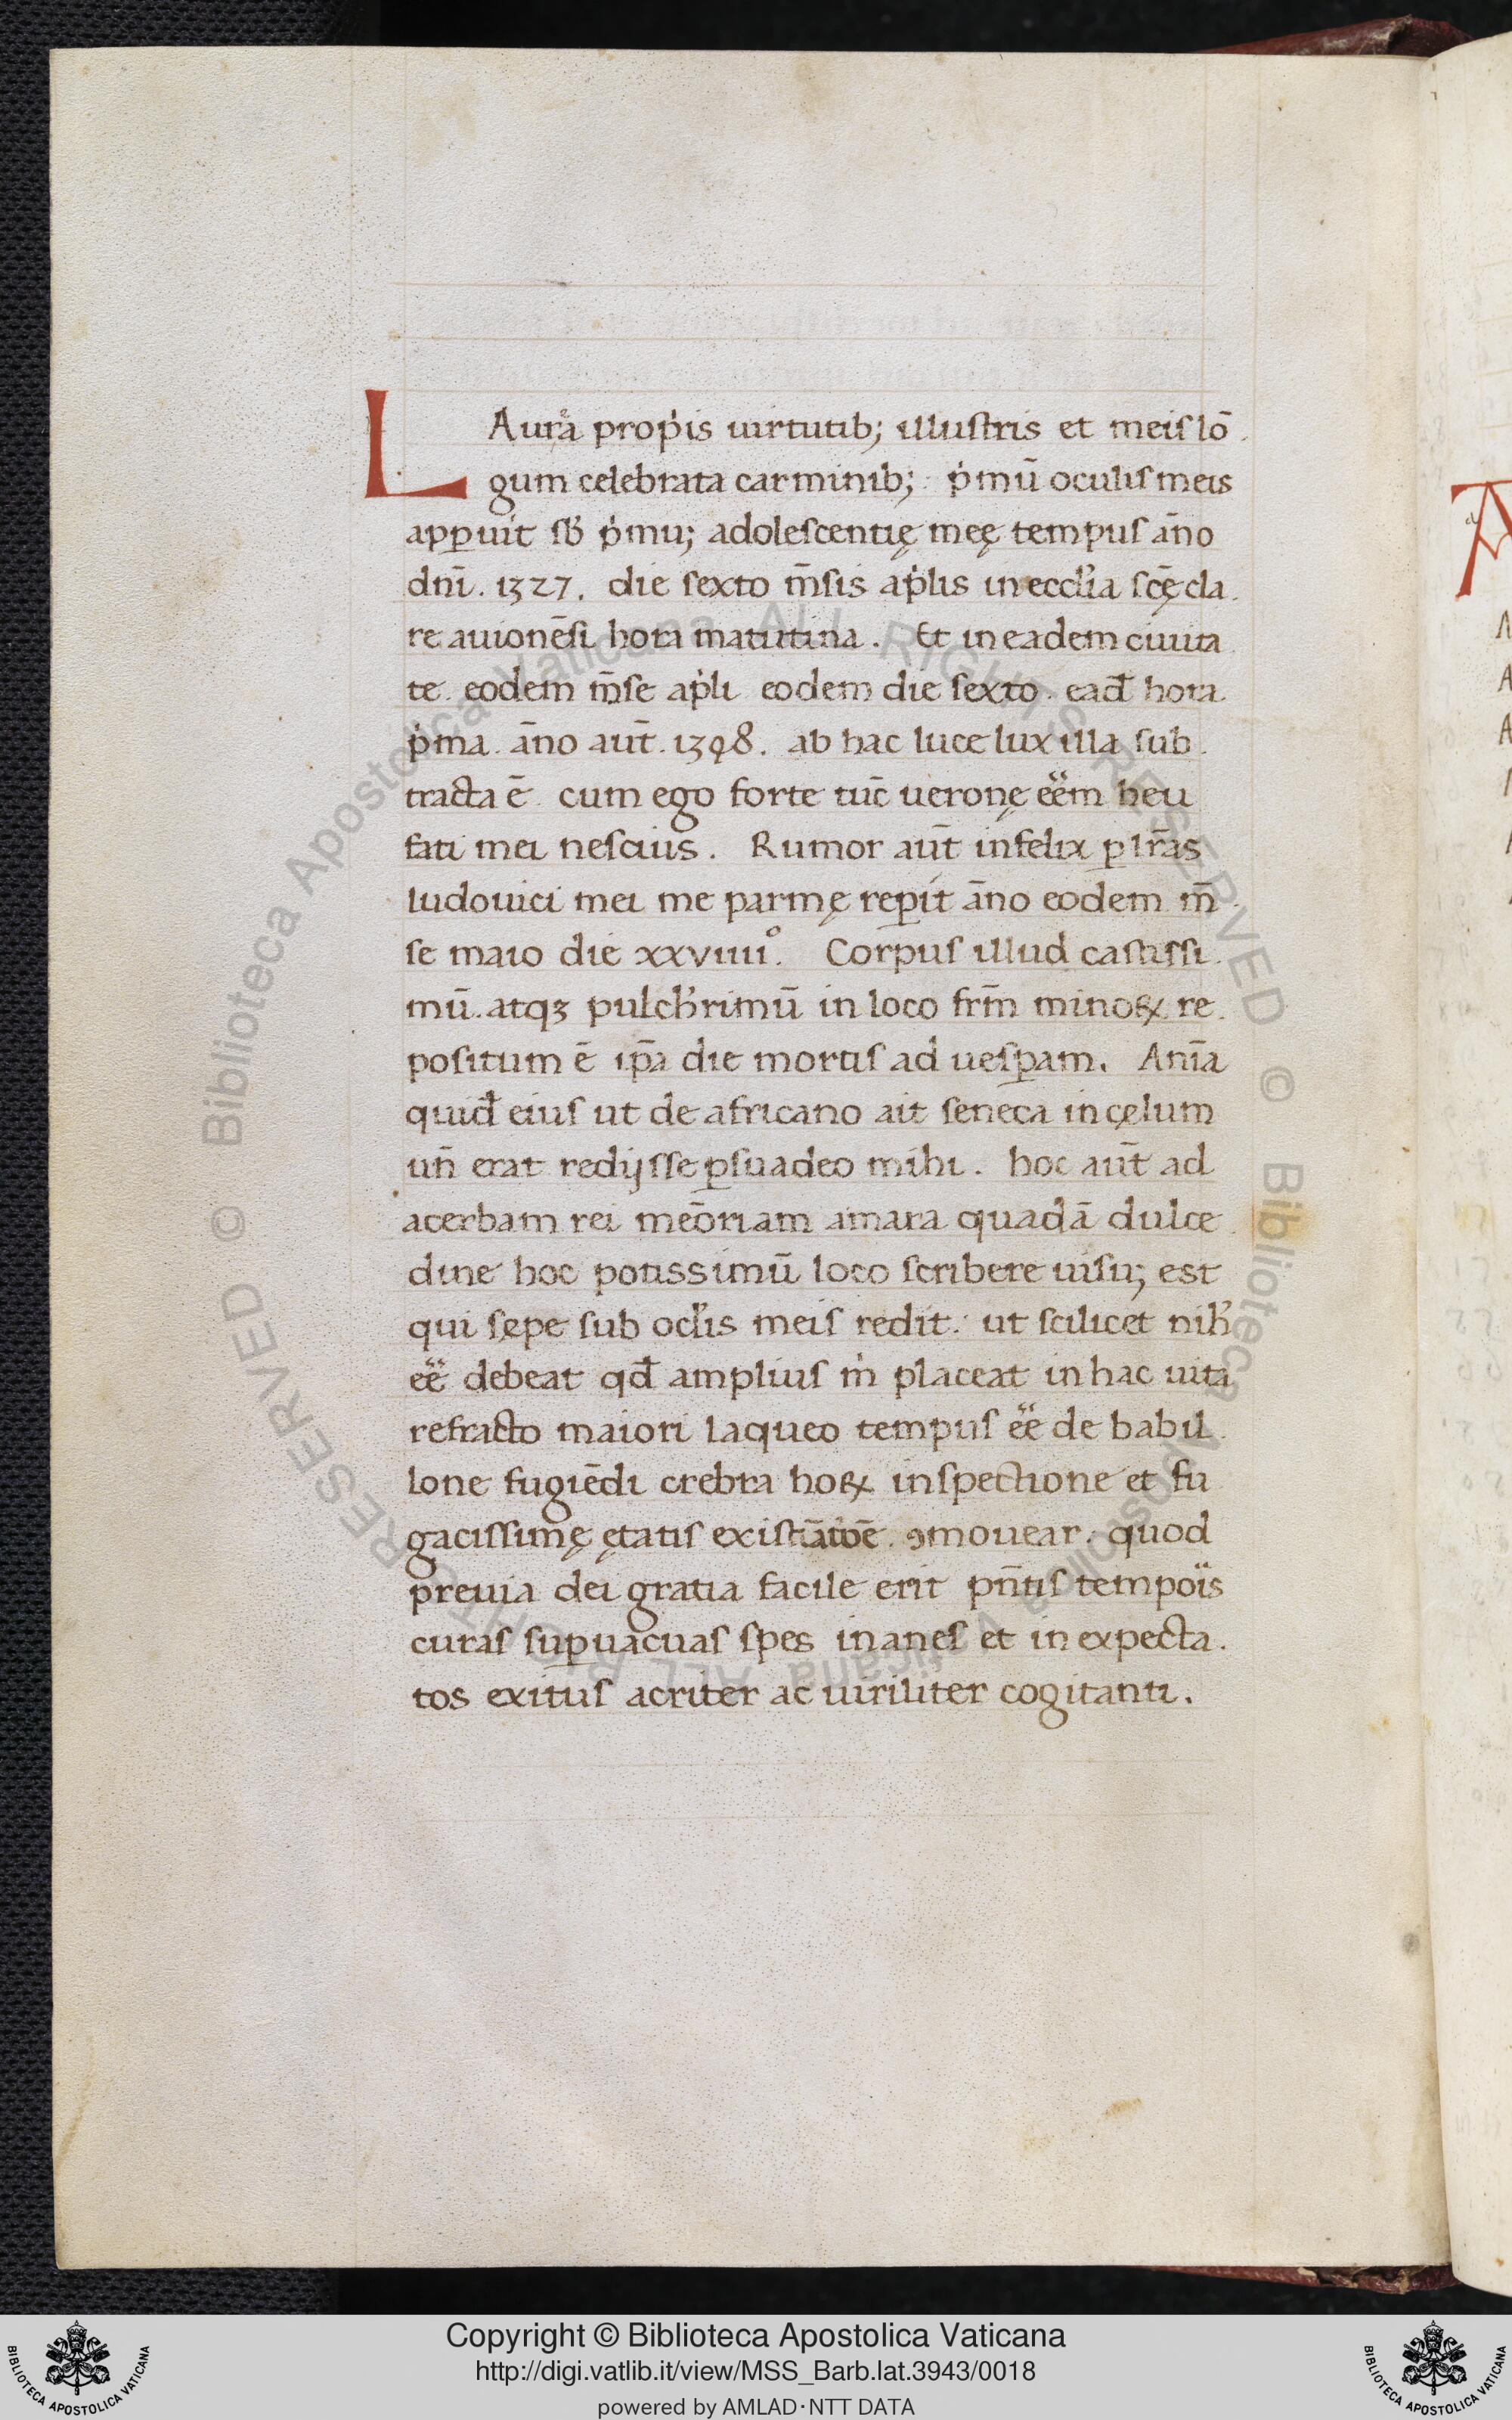 LAura propͥis uirtutib; illuſtris et meiſ lō
gum celebrata carminib; pͥmū oculiſ meis
apꝑuit ſƀ pͥmu; adoleſcentię meę tempuſ āno
dnī. 1327. die ſexto m̄ſis apͥlis in eccl̓ia ſcę̄ cla
re auionēſi hora matutina. Et in eadem ciuita
te eodem m̄ſe apͥli eodem die ſexto. eađ hora
pͥma. āno aut̄. 1348. ab hac luce lux illa ſub
tracta ē cum ego forte tūc ueronę eēm heu
fati mei neſcius. Rumor aut̄ infelix ꝑ lr̄as
ludouici mei me parmę reꝑit āno eodem m̄
ſe maio die xxviiii°. Corpuſ illud caſtiſſi
mū. atqꝫ pulch̓rimū in loco frm̄ minoꝝ re
poſitum ē ip̄a die mortiſ ad ueſꝑam. Anīa
quiđ eiuſ ut de africano ait ſeneca in cęlum
un̄ erat redijſſe ꝑſuadeo mihi. hoc aut̄ ad
acerbam rei meōriam amara quadā dulce
dine hoc potissimū loco ſcribere uiſu; est
qui ſępe ſub ocl̓is meiſ redit. ut ſcilicet nih̓
eē debeat qđ ampliuſ m̍ placeat in hac uita
refracto maiori laqueo tempuſ eē de babil
lone fugiēdi crebra hoꝝ inſpectione et fu
gaciſſimę ętatiſ exiſtīatōē ꝯmouear. quod
preuia dei gratia facile erit pn̄tiſ tempoͥs
curaſ ſuꝑuacuaſ ſpes inaneſ et inexpecta
tos exituſ acriter ac uiriliter cogitanti.
Copyright © Biblioteca Apostolica Vaticana
http://digi.vatlib.it/view/MSS_Barb.lat.3943/0018
powered by AMLAD·NTT DATA